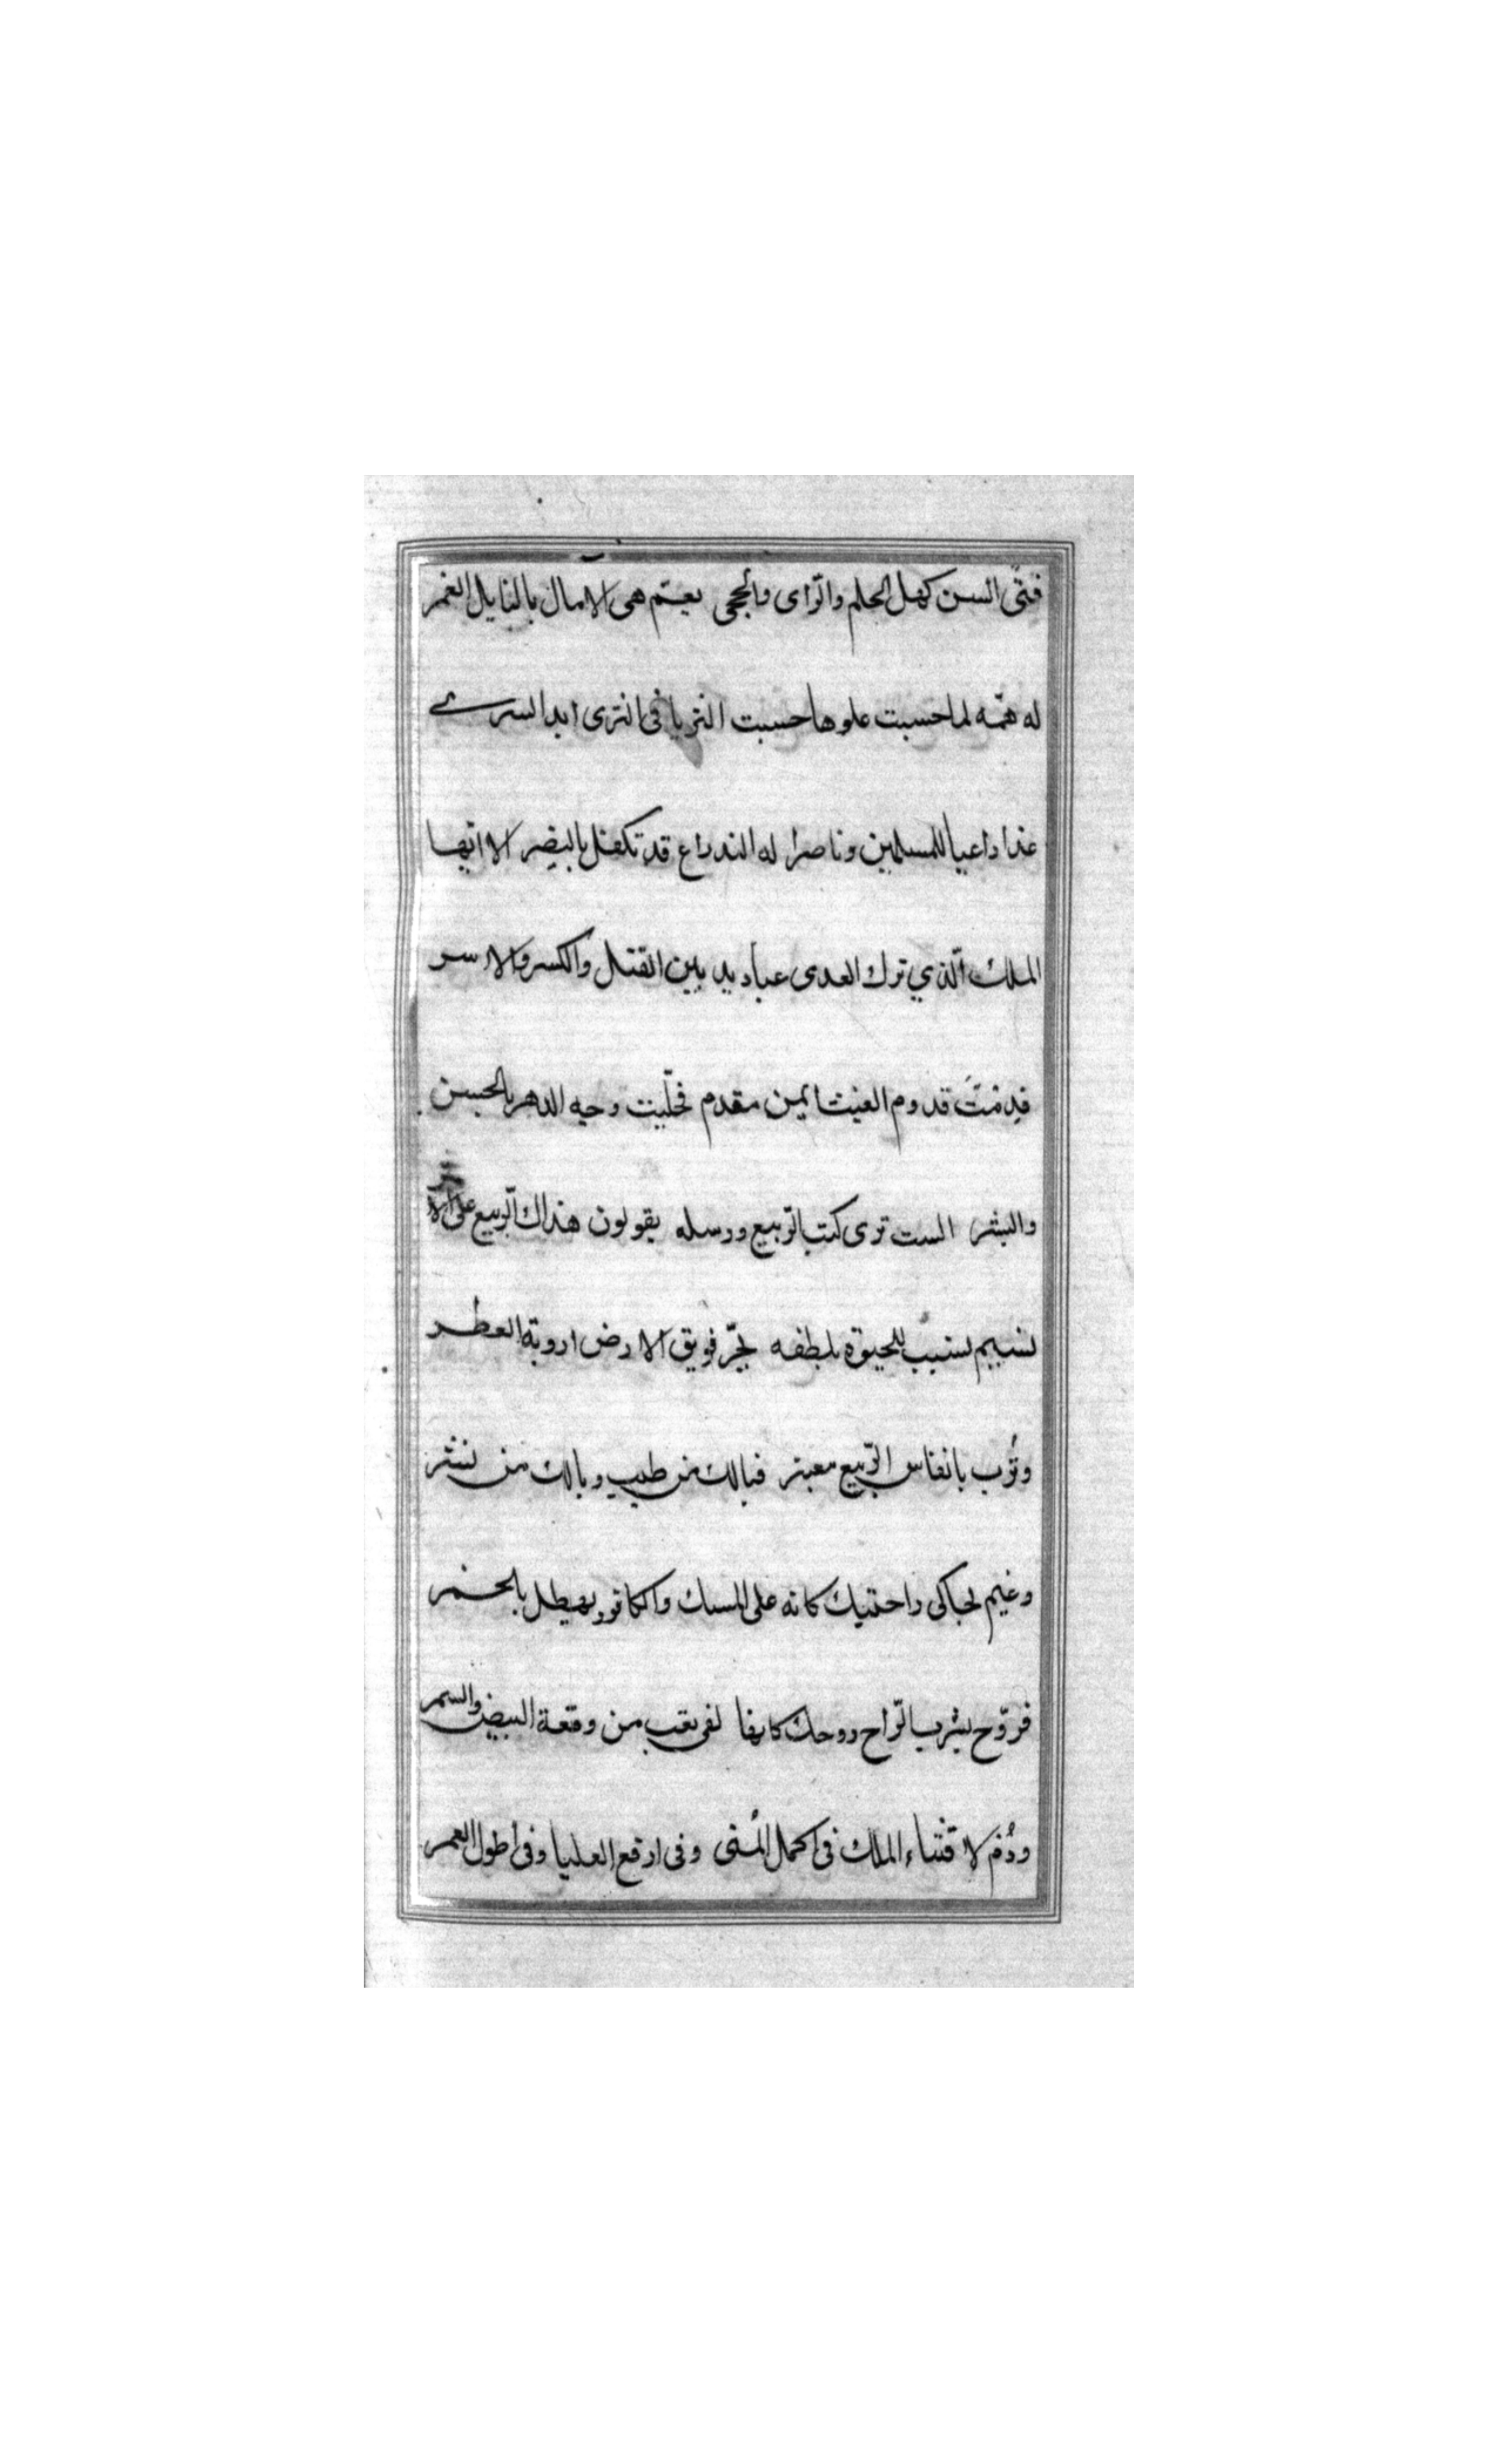 فتّى السن كهل الحلم والرّاى والحجى يعتم هى الآمال بالنايل الغمر
له همّه لما حسبت علوها حسبت الثريا فى الثرى ابدا لسرے
غدا داعيا للمسلمين وناصرا له الند راع قد تكفل بالنصر الا ايّها
الملك الّذي ترك العدى عباديد بين القتل والكسر والاسر
قدمتَ قدوم الغيث ايمن مقدم فحلّيت وجه الدهر بالحسن
والبشر الست ترى كتب الرّبيع ورسله يقولون هذاك الرّبيع على الاثر
نسيم نسيب للحيوة بلطفه يجرّ فويق الارض اروية العطر
وتُرب بانفاس الرّبيع معبنر فيالك من طيب ويالك من نشر
وغيم يحاكى راحتيك كانه على المسك والكافور يهطل بالخمر
فروّح بشرب الرّاح روحك كانها لفى تعب من وقعة البيض والسمر
ودُم لاقتناء الملك فى اكمل المُنى وفى ارفع العليا وفى اطول العمر